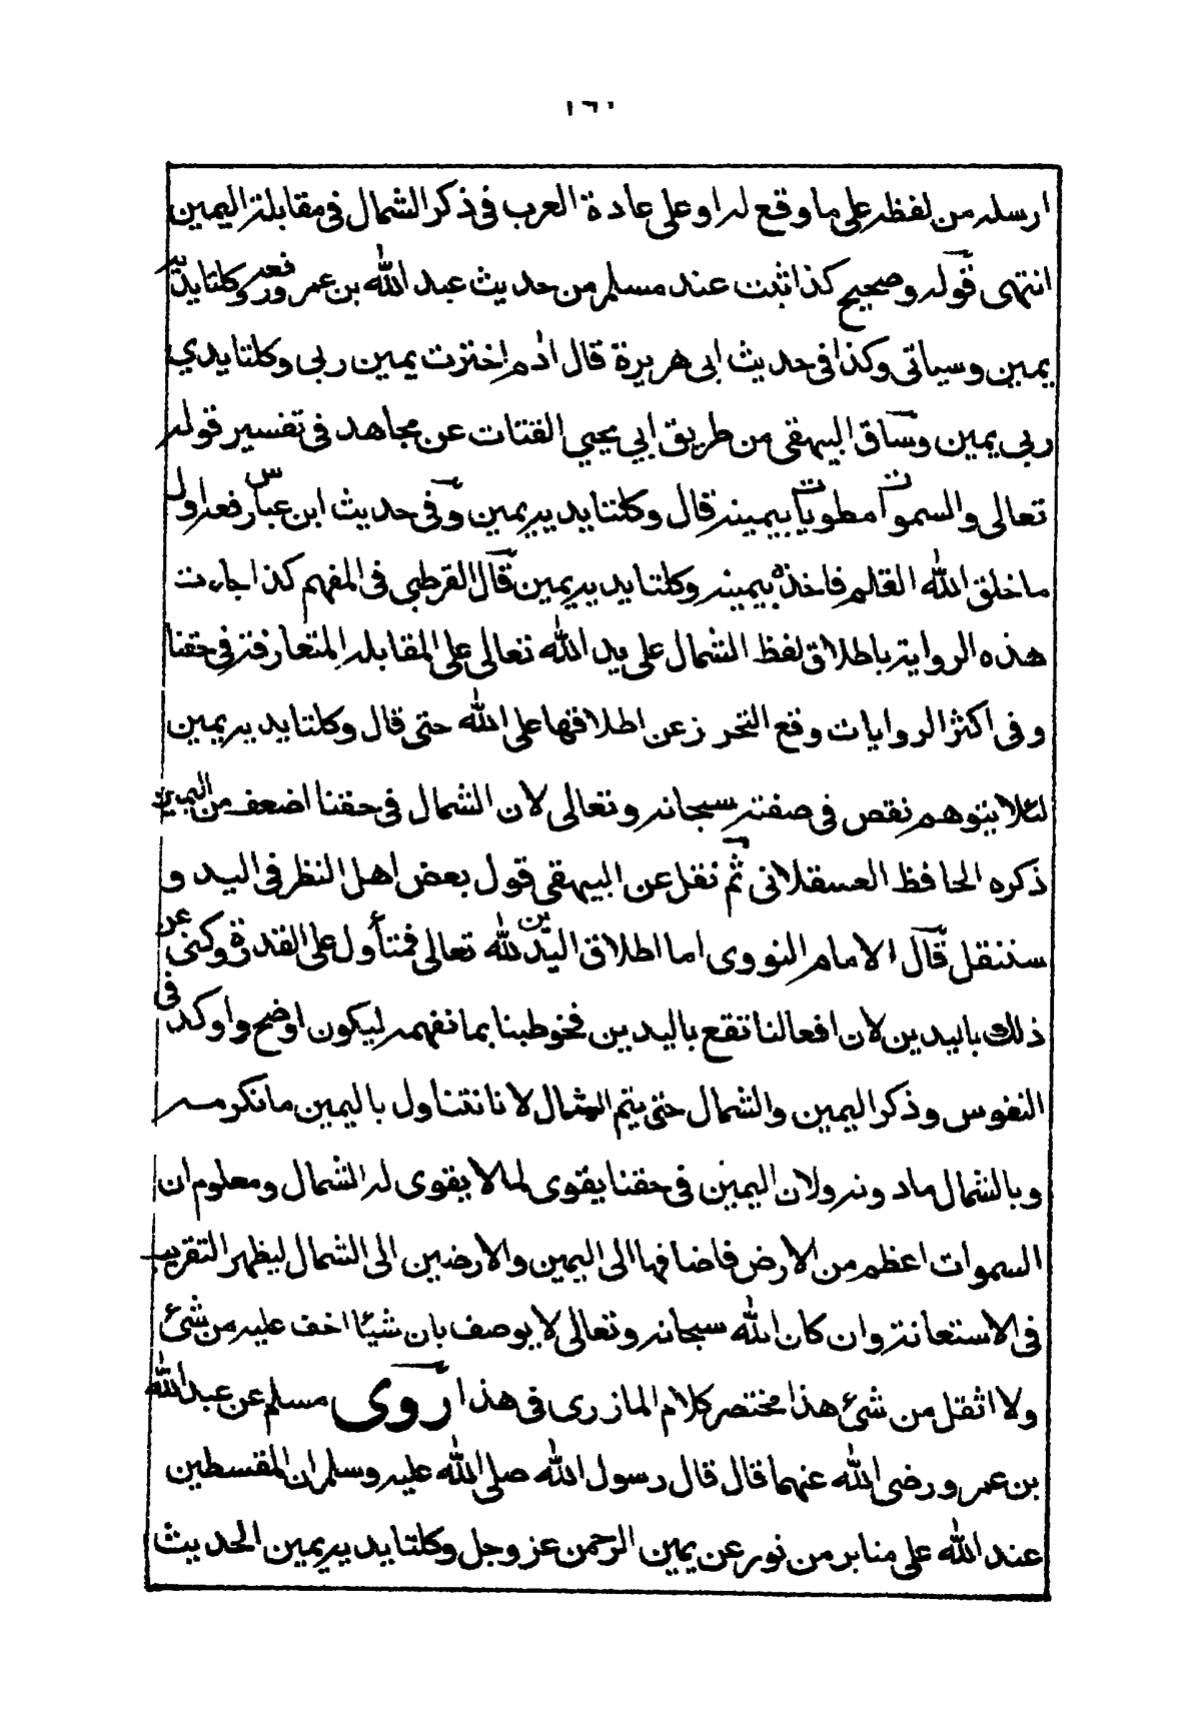 ١٦٠
ارسله من لفظه على ما وقع له او على عادة العرب فى ذكر الشمال فى مقابلة اليمين
انتهى قوله وصحيح كذا ثبت عند مسلم من حديث عبد الله بن عمرو رفعه وكلتا يديه
يمين وسياتى وكذا فى حديث ابى هريرة قال ادم اخترت يمين ربى وكلتا يدي
ربى يمين وساق البيهقى من طريق ابي يحيى القتات عن مجاهد فى تفسير قوله
تعالى والسموات مطويات بيمينه قال وكلتا يديه يمين وفى حديث ابن عباس رفعه اول
ما خلق الله القلم فاخذه بيمينه وكلتا يديه يمين قال القرطبى فى المفهم كذا جاءت
هذه الرواية باطلاق لفظ الشمال على يد الله تعالى على المقابلة المتعارفة فى حقنا
وفى اكثر الروايات وقع التحرز عن اطلاقها على الله حتى قال وكلتا يديه يمين
لئلا يتوهم نقص فى صفته سبحانه وتعالى لان الشمال فى حقنا اضعف من اليمين
ذكره الحافظ العسقلانى ثم نقل عن البيهقى قول بعض اهل النظر فى اليد و
سننقل قال الامام النووى اما اطلاق اليدين لله تعالى فمتأول على القدرة وكنى عن
ذلك باليدين لان افعالنا تقع باليدين فخوطبنا بما نفهمه ليكون اوضح واوكد فى
النفوس وذكر اليمين والشمال حتى يتم المثال لانا نتناول باليمين ما نكرمه
وبالشمال ما دونه ولان اليمين فى حقنا يقوى لما لا يقوى له الشمال ومعلوم ان
السموات اعظم من الارض فاضافها الى اليمين والارضين الى الشمال ليظهر التقريب
فى الاستعانة وان كان الله سبحانه وتعالى لا يوصف بان شيئا اخف عليه من شئ
ولا اثقل من شئ هذا مختصر كلام المازرى فى هذا روى مسلم عن عبد الله
بن عمرو رضى الله عنهما قال قال رسول الله صلى الله عليه وسلم ان المقسطين
عند الله على منابر من نور عن يمين الرحمن عز وجل وكلتا يديه يمين الحديث